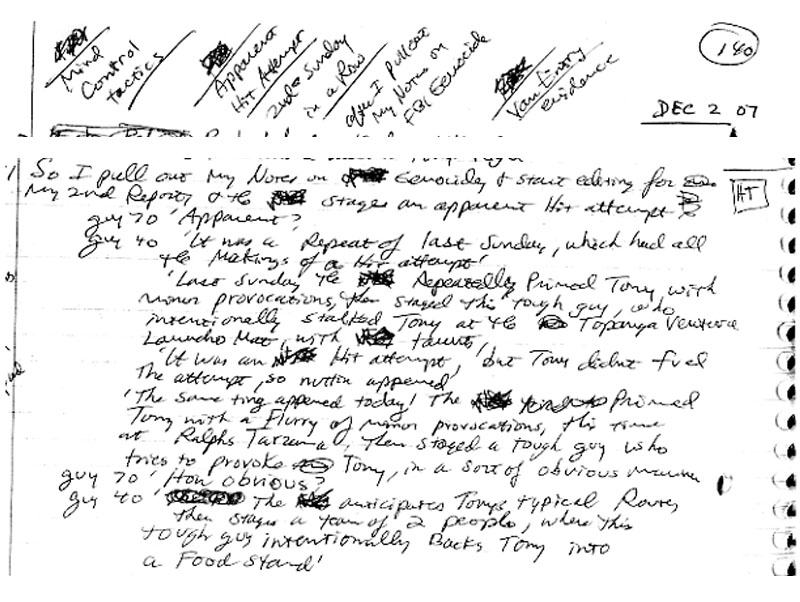 Mind
Control
tactics
Apparent
Hit Attempt
2nd Sunday
in a Row
after I pull out
my Notes on
FBI Genocide
Van Entry
evidence
140
DEC 2 07
So I pull out my Notes on Genocide, & start editing for
my 2nd Report, & the stages an apparent Hit attempt
HT
guy 70 'Apparent?
guy 40 'It was a Repeat of last Sunday, which had all
the Makings of a Hit attempt'
'Last Sunday the Repeatedly Primed Tony with
minor provocations, then staged this tough guy, who
intentionally stalked Tony at the Topanga Ventura
Laundro Mat, with taunts,
'It was an Hit attempt, but Tony didnt fuel
the attempt, so nuttin appened
'The same ting appened today! The Primed
Tony with a Flurry of minor provocations, this time
at Ralphs Tarzana, then staged a tough guy who
tries to provoke Tony, in a sort of obvious manner
guy 70 'How obvious?
guy 40 'The anticipates Tonys typical Route
then stages a team of 2 people, where this
tough guy intentionally Backs Tony into
a Food Stand'